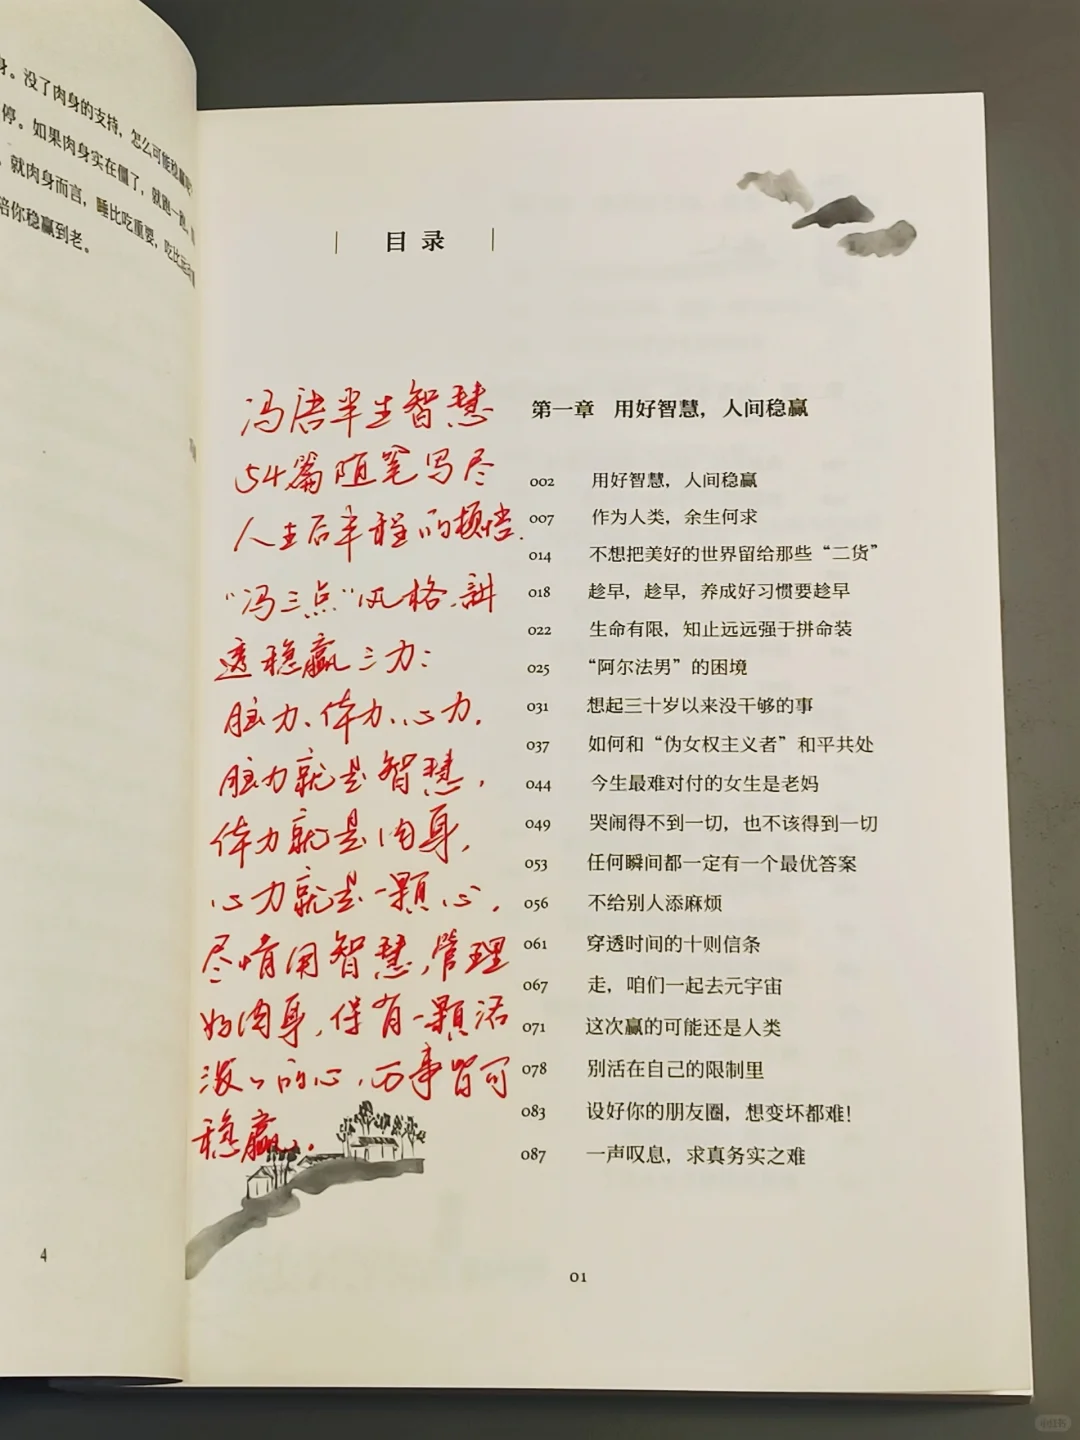 身。没了肉身的支持，怎么可能稳赢呢？
停。如果肉身实在僵了，就跑一跑，
就肉身而言，睡比吃重要，吃比运动
陪你稳赢到老。
4
目录
冯唐半生智慧
54篇随笔写尽
人生后半程的顿悟.
“冯三点”风格,讲
透稳赢三力:
脑力、体力、心力.
脑力就是智慧,
体力就是肉身,
心力就是一颗心,
尽情用智慧,管理
好肉身,保有一颗活
泼泼的心,万事皆可
稳赢.
第一章 用好智慧，人间稳赢
002 用好智慧，人间稳赢
007 作为人类，余生何求
014 不想把美好的世界留给那些“二货”
018 趁早，趁早，养成好习惯要趁早
022 生命有限，知止远远强于拼命装
025 “阿尔法男”的困境
031 想起三十岁以来没干够的事
037 如何和“伪女权主义者”和平共处
044 今生最难对付的女生是老妈
049 哭闹得不到一切，也不该得到一切
053 任何瞬间都一定有一个最优答案
056 不给别人添麻烦
061 穿透时间的十则信条
067 走，咱们一起去元宇宙
071 这次赢的可能还是人类
078 别活在自己的限制里
083 设好你的朋友圈，想变坏都难！
087 一声叹息，求真务实之难
01
小红书